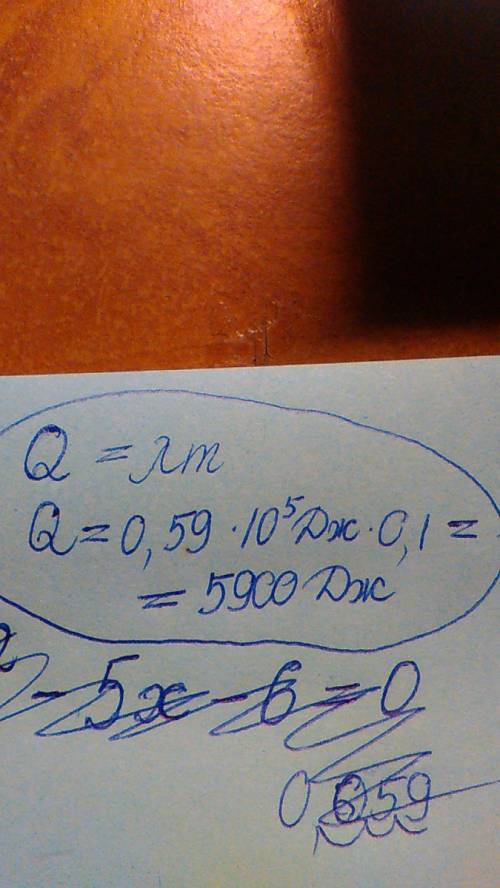 Q = λm
Q = 0,59 · 10⁵ Дж · 0,1 =
= 5900 Дж
- 5x - 6 = 0
0 659